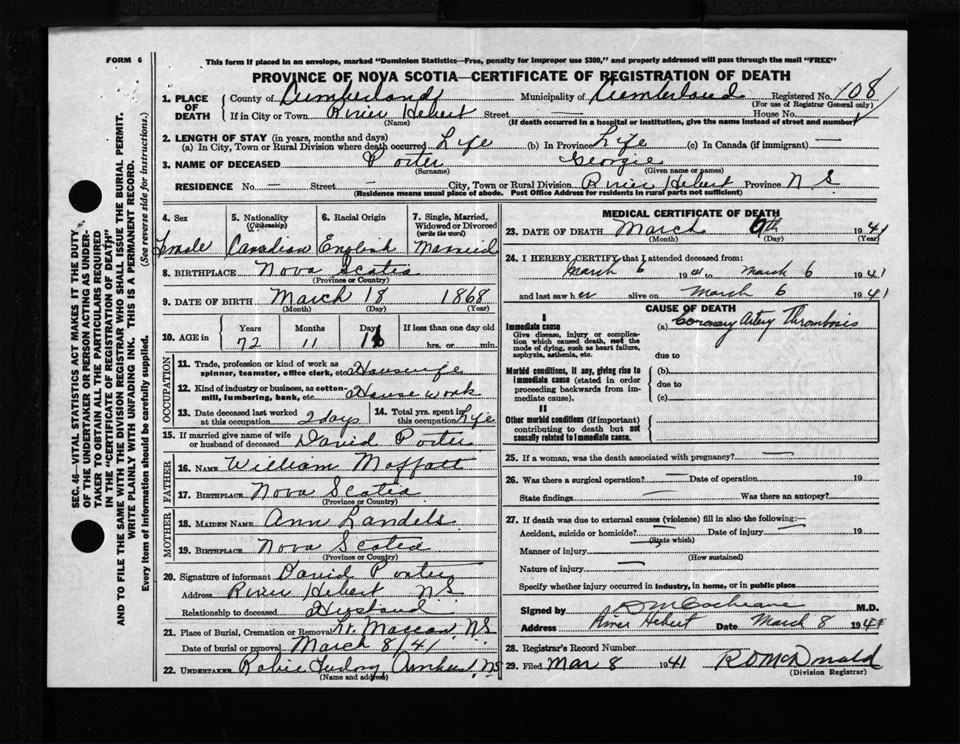 FORM 6
This form if placed in an envelope, marked "Dominion Statistics—Free, penalty for improper use $300," and properly addressed will pass through the mail "FREE"
PROVINCE OF NOVA SCOTIA—CERTIFICATE OF REGISTRATION OF DEATH
1. PLACE OF DEATH County of Cumberland Municipality of Cumberland Registered No. 108
(For use of Registrar General only)
If in City or Town River Hebert Street — House No.
(Name) (If death occurred in a hospital or institution, give the name instead of street and number)
2. LENGTH OF STAY (in years, months and days)
(a) In City, Town or Rural Division where death occurred Life (b) In Province Life (c) In Canada (if immigrant) —
3. NAME OF DECEASED Porter Georgie
(Surname) (Given name or names)
RESIDENCE No. — Street — City, Town or Rural Division River Hebert Province N S
(Residence means usual place of abode. Post Office Address for residents in rural parts not sufficient)
4. Sex 5. Nationality (Citizenship) 6. Racial Origin 7. Single, Married, Widowed or Divorced (write the word)
Female Canadian English Married
8. BIRTHPLACE Nova Scotia
(Province or Country)
9. DATE OF BIRTH March 18 1868
(Month) (Day) (Year)
10. AGE in Years Months Days If less than one day old
72 11 hrs. or min.
OCCUPATION
11. Trade, profession or kind of work as spinner, teamster, office clerk, etc. Housewife
12. Kind of industry or business, as cotton-mill, lumbering, bank, etc. House work
13. Date deceased last worked at this occupation 2 days 14. Total yrs. spent in this occupation Life
15. If married give name of wife or husband of deceased David Porter
FATHER
16. NAME William Moffatt
17. BIRTHPLACE Nova Scotia
(Province or Country)
MOTHER
18. MAIDEN NAME Ann Landels
19. BIRTHPLACE Nova Scotia
(Province or Country)
20. Signature of informant David Porter
Address River Hebert N S
Relationship to deceased Husband
21. Place of Burial, Cremation or Removal Maccan, N.S
Date of burial or removal March 8/41
22. UNDERTAKER Amherst, NS
(Name and address)
MEDICAL CERTIFICATE OF DEATH
23. DATE OF DEATH March 6th 1941
(Month) (Day) (Year)
24. I HEREBY CERTIFY that I attended deceased from:
March 6 1941 to March 6 1941
and last saw her alive on March 6 1941
CAUSE OF DEATH
I
Immediate cause (a) Coronary Artery Thrombosis
Give disease, injury or complication which caused death, not the mode of dying, such as heart failure, asphyxia, asthenia, etc. due to
Morbid conditions, if any, giving rise to immediate cause (stated in order proceeding backwards from immediate cause). (b)
due to
(c)
II
Other morbid conditions (if important) contributing to death but not causally related to immediate cause.
25. If a woman, was the death associated with pregnancy? —
26. Was there a surgical operation? — Date of operation 19
State findings — Was there an autopsy? —
27. If death was due to external causes (violence) fill in also the following:—
Accident, suicide or homicide? — Date of injury — 19
(State which)
Manner of injury
(How sustained)
Nature of injury —
Specify whether injury occurred in industry, in home, or in public place
Signed by D M Cochrane M.D.
Address River Hebert Date March 8 1941
28. Registrar's Record Number
29. Filed Mar 8 1941 R D McDonald
(Division Registrar)
SEC. 46—VITAL STATISTICS ACT MAKES IT THE DUTY
OF THE UNDERTAKER OR PERSON ACTING AS UNDER-
TAKER TO OBTAIN ALL THE PARTICULARS REQUIRED
IN THE "CERTIFICATE OF REGISTRATION OF DEATH"
AND TO FILE THE SAME WITH THE DIVISION REGISTRAR WHO SHALL ISSUE THE BURIAL PERMIT.
WRITE PLAINLY WITH UNFADING INK. THIS IS A PERMANENT RECORD.
Every item of information should be carefully supplied. (See reverse side for instructions.)